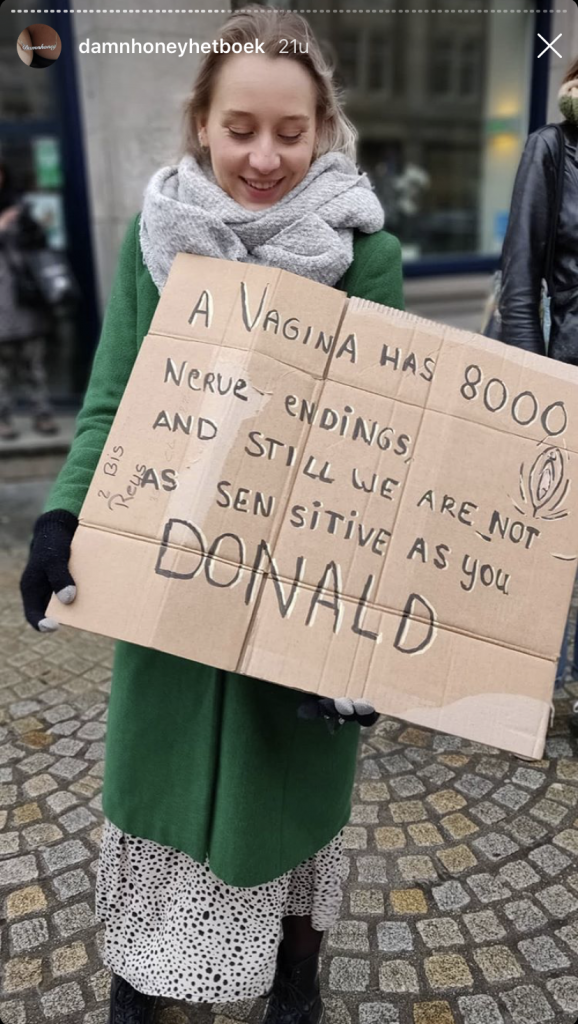 damnhoneyhetboek 21u
A VAGINA HAS 8000
NERVE ENDINGS,
AND STILL WE ARE NOT
AS SENSITIVE AS YOU
DONALD